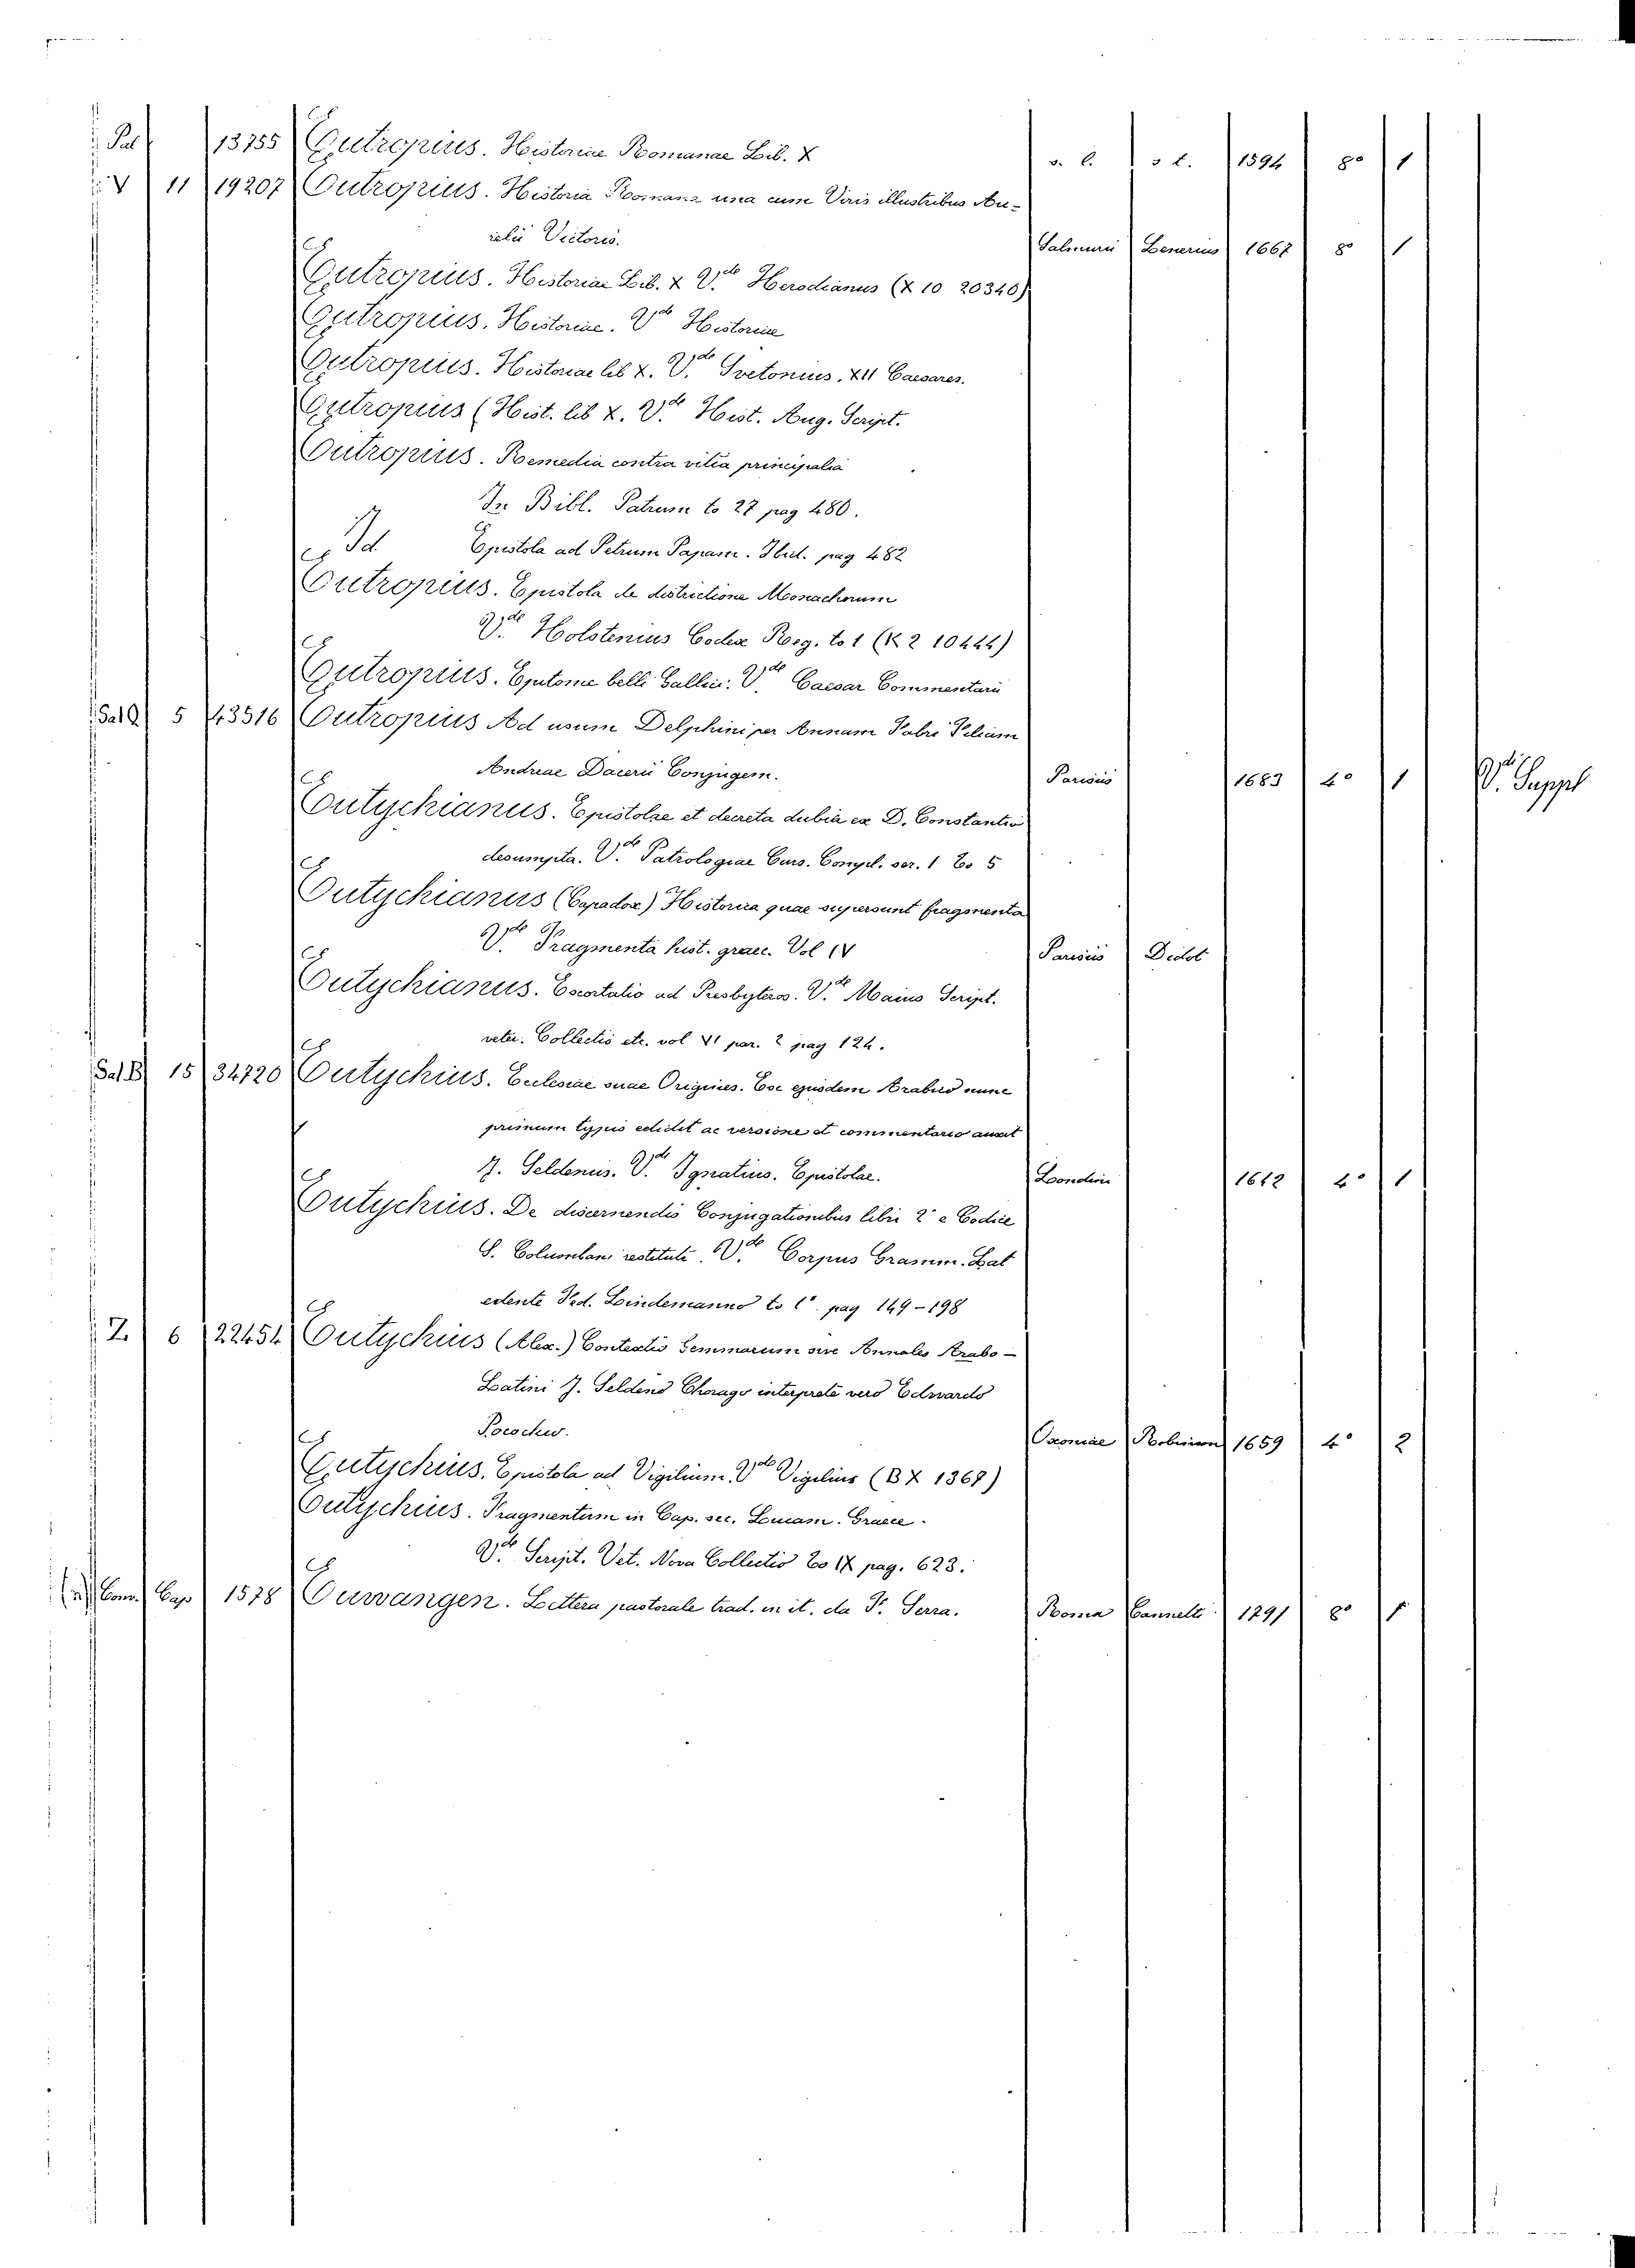 Pal 13755 Eutropius. Historiae Romanae Lib. X s. l. s t. 1594 8° 1
V 11 19207 Eutropius. Historia Romana una cum Viris illustribus Au-
relii Victoris. Salmurii Lenerius 1667 8° 1
Eutropius. Historiae Lib. X V.de Herodianus (X 10 20340)
Eutropius. Historiae. V.de Historiae
Eutropius. Historiae lib X. V.de Svetonius, XII Caesares.
Eutropius (Hist. lib X. V.de Hist. Aug. Script.
Eutropius. Remedia contra vitia principalia
In Bibl. Patrum to 27 pag 480.
Id. Epistola ad Petrum Papam. Ibid. pag 482
Eutropius. Epistola de districtione Monachorum
V.de Holstenius Codex Reg. to 1 (K 2 10444)
Eutropius. Epitome belli Gallici. V.de Caesar Commentarii
Sal Q 5 43516 Eutropius Ad usum Delphini per Annam Fabri Filiam
Andreae Dacerii Conjugem. Parisiis 1683 4° 1 V.de Suppl
Eutychianus. Epistolae et decreta dubia ex D. Constantio
desumpta. V.de Patrologiae Curs. Compl. ser. 1 To 5
Eutychianus (Capadox) Historica quae supersunt fragmenta
V.de Fragmenta hist. graec. Vol IV Parisiis Didot
Eutychianus. Exortatio ad Presbyteros. V.de Maius Script.
veter. Collectio etc. vol VI par. 2 pag 124.
Sal B 15 34720 Eutychius. Ecclesiae suae Origines. Ex ejusdem Arabico nunc
primum typis edidit ac versione et commentario auxit
J. Seldenus. V.de Ignatius. Epistolae. Londini 1642 4° 1
Eutychius. De discernendis Conjugationibus libri 2 e Codice
S. Columbani restituti. V.de Corpus Gramm. Lat
edente Fed. Lindemanno to 1° pag 149-198
Z. 6 22454 Eutychius (Alex.) Contextio Gemmarum sive Annales Arabo-
Latini J. Seldeno Chorago interprete vero Edwardo
Pocockio. Oxoniae Robinson 1659 4° 2
Eutychius. Epistola ad Vigilium. V.de Vigilius (B X 1367)
Eutychius. Fragmentum in Cap. sec. Lucam. Graece.
V.de Script. Vet. Nova Collectio To IX pag. 623.
Conv. Cap 1578 Euwangen. Lettera pastorale trad. in it. da F. Serra. Roma Cannetti 1791 8° 1